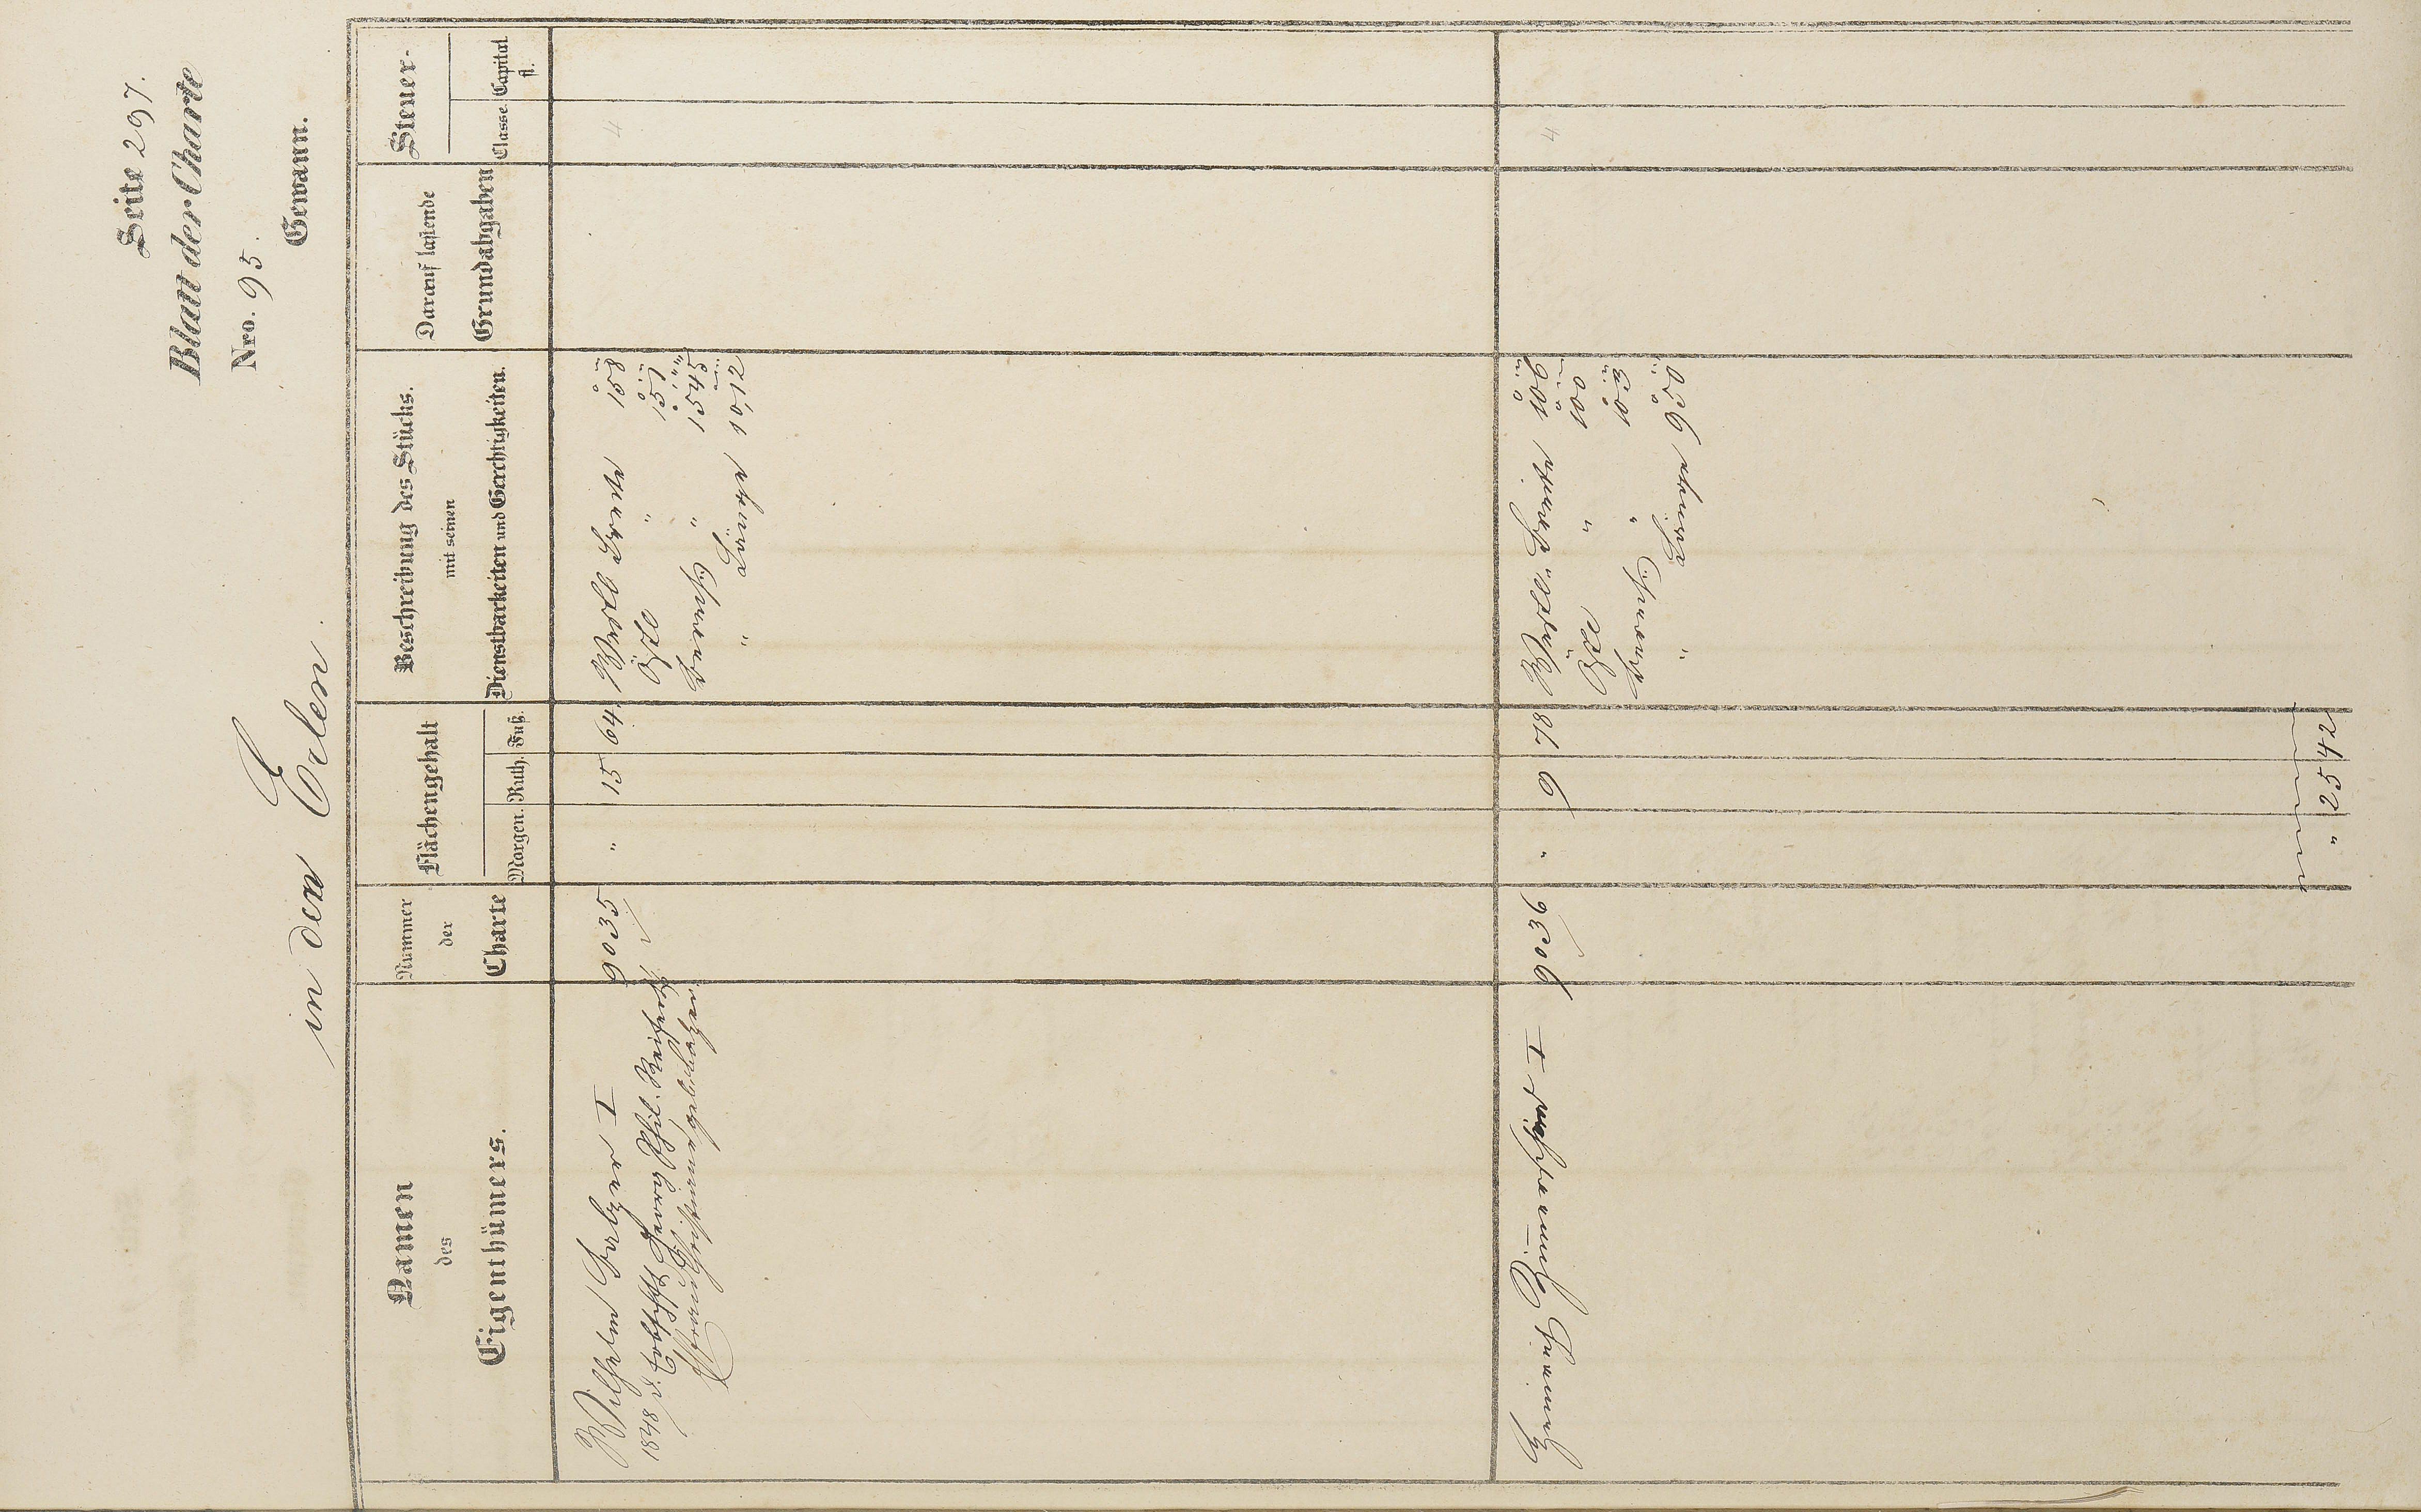 Seite 297.
Blatt der Charte
Nro. 95.
in den Erlen.
Gewann.
Namen
des
Eigenthümers.
Nummer
der
Charte
Flächengehalt
Morgen. Ruth. Fuß.
Beschreibung des Stücks.
mit seinen
Dienstbarkeiten und Gerechtigkeiten.
Darauf lastende
Grundabgaben
Steuer-
Classe. Capital
fl.
Wilhelm Balzer I 9035 " 15 64 Westl Breite 158 4
1848 d. Erbschft Georg Phil. Reifert Östl " 157
Ehefrau Christina, geb. Balzer Berech " 1545
" Länge 1012
I 9036 " 9 78 Westl. Breite 4
Östl "
"
" Länge
" 25 42